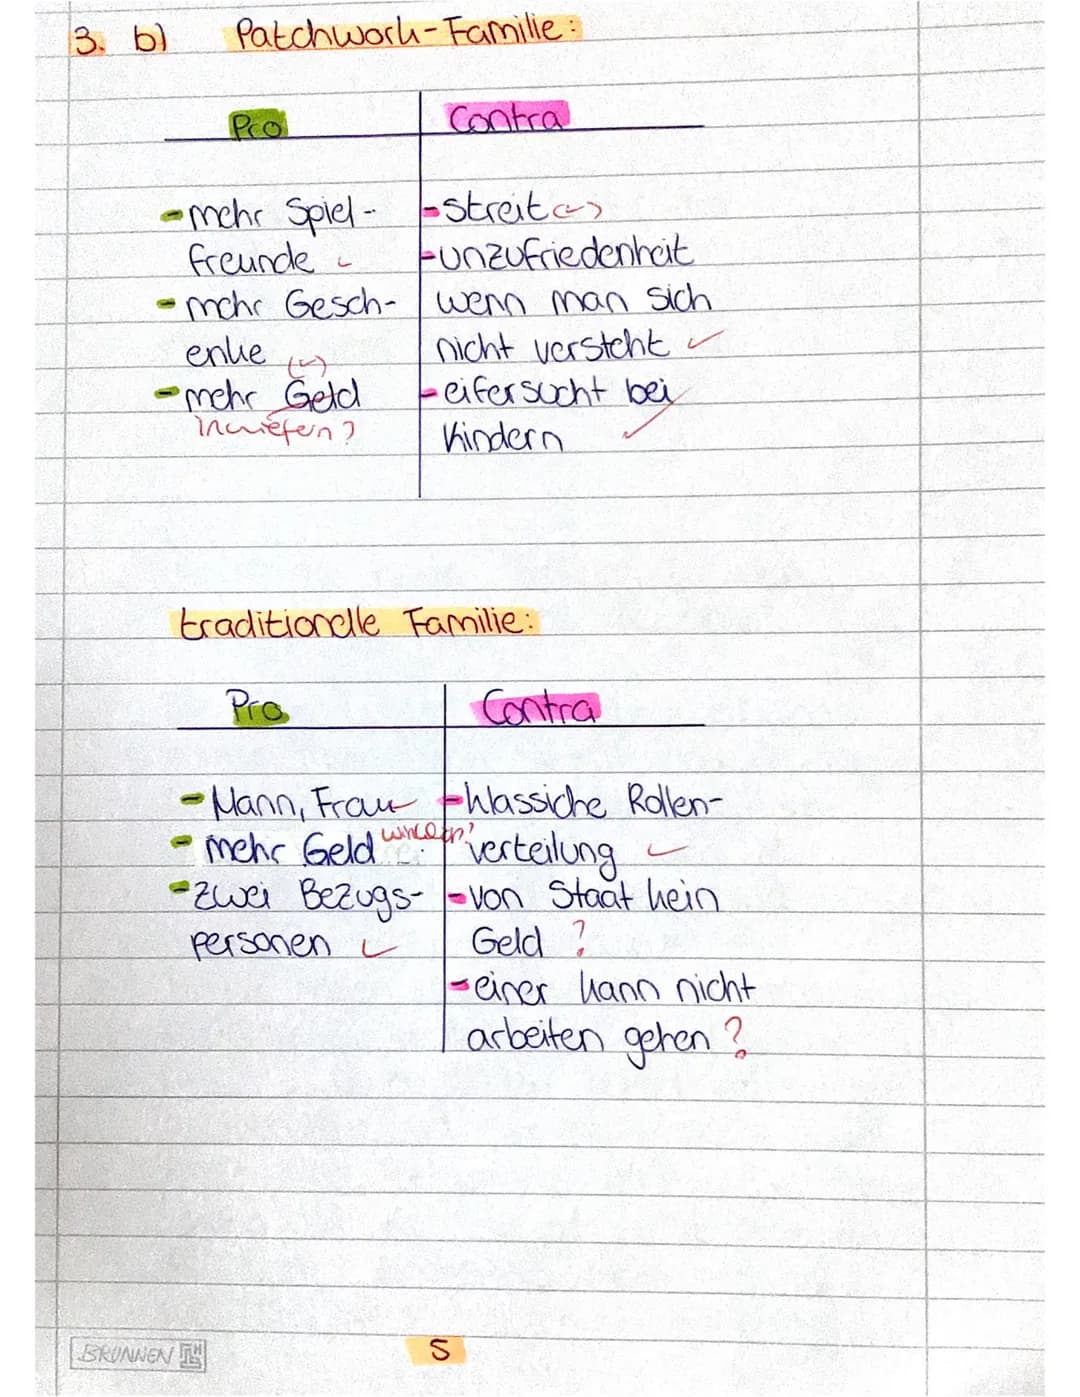 3. b) Patchwork-Familie:
Pro Contra
- mehr Spiel-
freunde
- mehr Gesch-
enke
- mehr Geld
Inwiefern?
- Streit
- unzufriedenheit
wenn man sich
nicht versteht
- eifersucht bei
Kindern
traditionelle Familie:
Pro Contra
- Mann, Frau
- mehr Geld
- zwei Bezugs-
personen
- klassiche Rollen-
verteilung
- von Staat kein
Geld ?
- einer kann nicht
arbeiten gehen ?
BRUNNEN
5